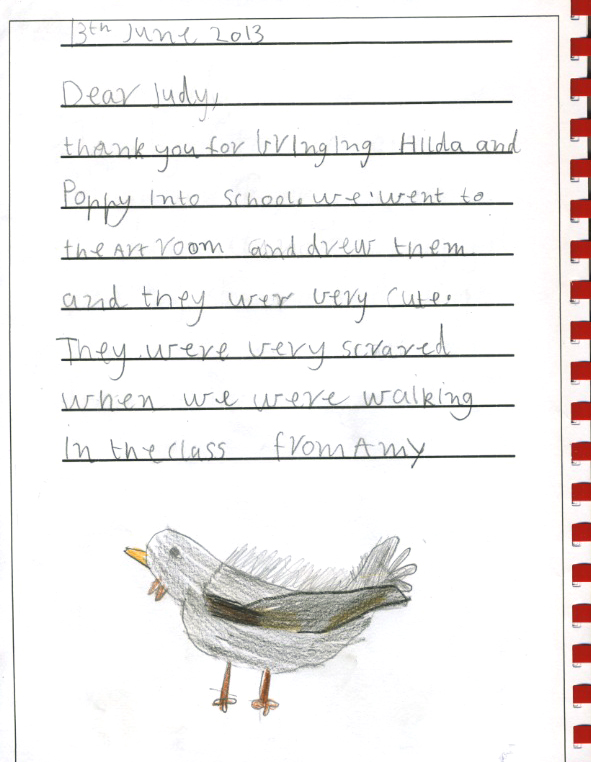 13th June 2013
Dear Judy,
thank you for bringing Hilda and
Poppy into school. we went to
the Art room and drew them
and they wer very cute.
They were very scrared
when we were walking
in the class from Amy